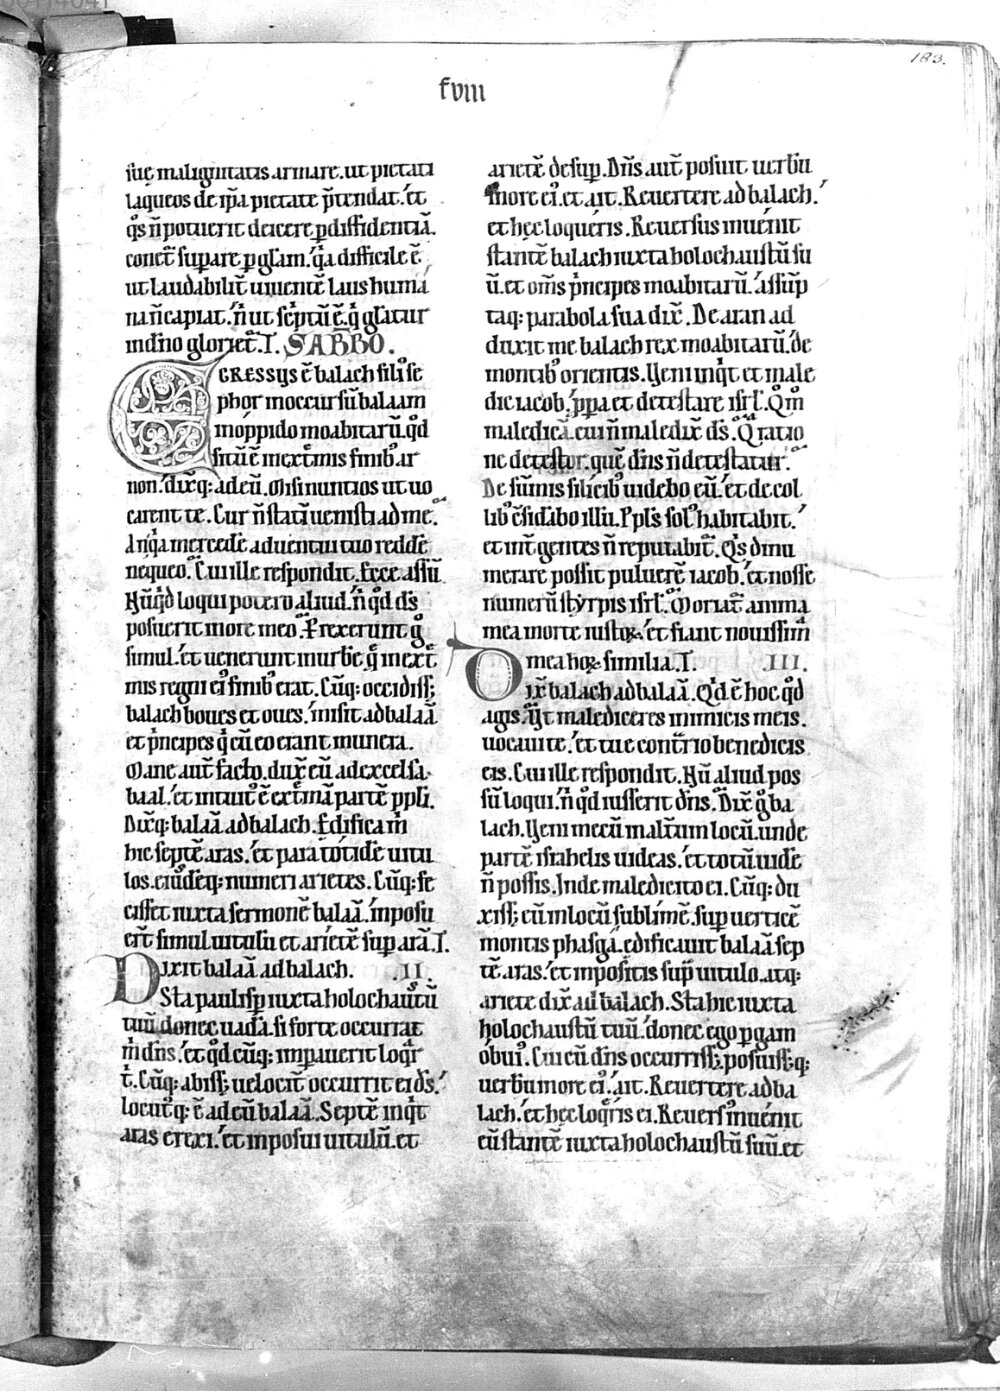 183.
fviii
suę malignitatis armare. ut pietati
laqueos de ip̄a pietate p̄tendat. et
q̊s ñ potuerit deicere ꝑ diffidentiā.
conet᷑ supare ꝑ gl̄am. q̇a difficile ē.
ut laudabilit᷑ uiuentē laus humā
na ñ capiat. ñ ut septū ē. q̇ gl̄atur
in dño gloriet᷑. T. SABBO.
EGRESSUS ē balach fili᷒ se
phor in occursū balaam
in oppido moabitarū. qđ
sitū ē in extͥmis finib᷒ ar
non. dix̄q; ad eū. Misi nuntios ut uo
carent te. Cur ñ statī uenisti ad me.
An q̇a mercedē aduentui tuo reddē
nequeo. Cui ille respondit. Ecce assū
Nūqͥd loqui potero aliud. ñ qđ dš
posuerit in ore meo. Prexerunt g̊
simul. et uenerunt in urbē. q̨ in ext͛
mis regni ei᷒ finib᷒ erat. Cūq; occidiss;
balach boues et oues. misit ad balaā
et pͥncipes qͥ cū eo erant munera.
Mane aut̄ facto. dux̄ eū ad excelsa
baal. et intuit᷒ ē ext͛mā partē ppl̄i.
Dix̄q; balaā ad balach. Edifica m̄
hic septē aras. et para totidē uitu
los. eiusdēq; numeri arietes. Cūq; fe
cisset iuxta sermonē balaā. inposu
er̄t simul uitulū et arietē sup̄ arā. T.
Dixit balaā ad balach. .II.
Sta paulisꝑ iuxta holocaustū
tuū donec uadā. si forte occurrat
m̄ dñs. et qđ cūq; imperauerit loqͣr
t̄. Cūq; abiss; uelocit᷑ occurrit ei dš.
locut᷒q; ē ad eū balaā. Septē inqͥt
aras erexi. et inposui uitulū. et
arietē desup̄. Dñs. aut̄ posuit uerbū
in ore ei᷒. et ait. Reuertere ad balach.
et hęc loqueris. Reuersus inuenit
stantē balach iuxta holochaustū su
ū. et om̄s pͥncipes moabitarū. assūp
taq; parabola sua dix̄. De aran ad
duxit me balach rex moabitarū. de
montib᷒ orientis. Ueni inqͥt et male
dic iacob. ꝓpera et detestare isr̄l. Qm̊
maledicā. cui ñ maledix̄ dš. Qͣ ratio
ne detester. quē dñs ñ detestatur.
De sūmis silicib᷒ uidebo eū. et de col
lib᷒ c̄sidabo illū. Ppl̄s sol᷒ habitabit.
et int͛ gentes ñ reputabit᷑. Qͥs dinu
merare possit puluerē iacob. et nosse
numerū styrpis isr̄l. Moriat᷑ anima
mea morte iustoꝝ. et fiant nouissim̄
mea hoꝝ similia. T. .III.
Dix̄ balach ad balaā. Qͥd ē hoc qđ
agis. Ut malediceres inimicis meis.
uocaui te. et tu e cont͛rio benedicis
eis. Cui ille respondit. Nū aliud pos
sū loqui. ñ qđ iusserit dñs. Dix̄ g̊ ba
lach. Ueni mecū in alt͛um locū. unde
partē israhelis uideas. et totū uidē
ñ possis. Inde maledicito ei. Cūq; du
xiss; eū in locū sublimē. sup̄ uerticē
montis phasga. edificauit balaā sep
tē aras. et inpositis sup̄ uitulo. atq;
ariete dix̄ ad balach. Sta hic iuxta
holochaustū tuū. donec ego ꝑgam
obui᷒. Cui cū dñs occurriss;. posuiss;q;
uerbū in ore ei᷒. ait. Reuertere ad ba
lach. et hęc loq͛ris ei. Reuers᷒ inuenit
eū stantē iuxta holochaustū suū. et